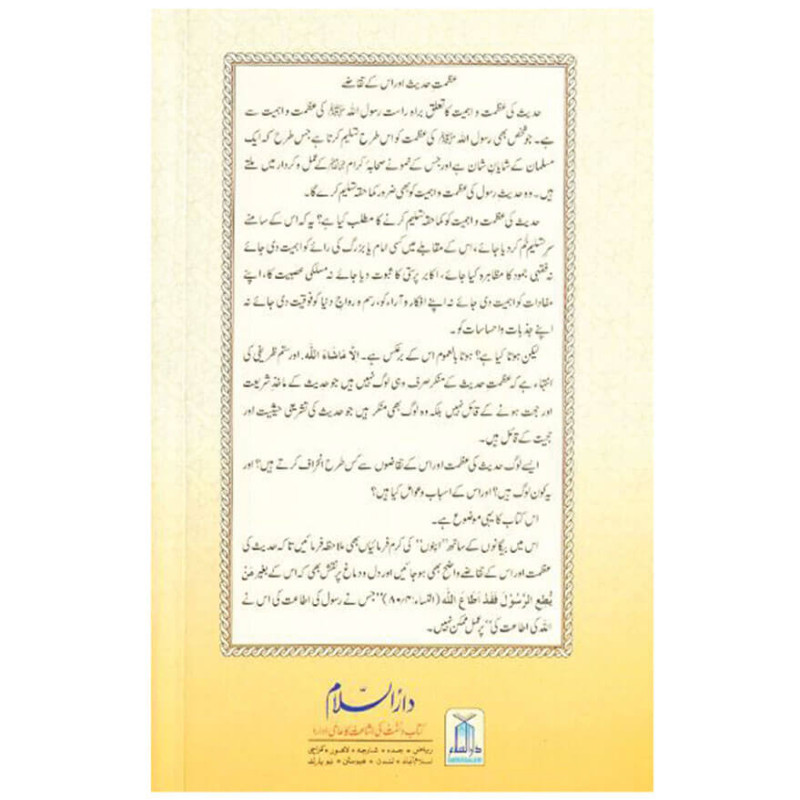 عظمتِ حدیث اور اس کے تقاضے
حدیث کی عظمت و اہمیت کا تعلق براہ راست رسول اللہ ﷺ کی عظمت و اہمیت سے
ہے۔ جو شخص بھی رسول اللہ ﷺ کی عظمت کو اس طرح تسلیم کرتا ہے جس طرح کہ ایک
مسلمان کے شایانِ شان ہے اور جس کے نمونے صحابۂ کرام رضی اللہ عنہم کے عمل و کردار میں ملتے
ہیں۔ وہ حدیثِ رسول کی عظمت و اہمیت کو بھی ضرور کما حقہ تسلیم کرے گا۔
حدیث کی عظمت و اہمیت کو کما حقہ تسلیم کرنے کا مطلب کیا ہے؟ یہ کہ اس کے سامنے
سرِ تسلیم خم کر دیا جائے، اس کے مقابلے میں کسی امام یا بزرگ کی رائے کو اہمیت دی جائے
نہ فقہی جمود کا مظاہرہ کیا جائے، اکابر پرستی کا ثبوت دیا جائے نہ مسلکی عصبیت کا، اپنے
مفادات کو اہمیت دی جائے نہ اپنے افکار و آراء کو، رسم و رواجِ دنیا کو فوقیت دی جائے نہ
اپنے جذبات و احساسات کو۔
لیکن ہوتا کیا ہے؟ ہوتا بالعموم اس کے برعکس ہے۔ اِلَّا مَاشَاءَ اللّٰہ. اور ستم ظریفی کی
انتہاء ہے کہ عظمتِ حدیث کے منکر صرف وہی لوگ نہیں ہیں جو حدیث کے ماخذِ شریعت
اور حجت ہونے کے قائل نہیں بلکہ وہ لوگ بھی منکر ہیں جو حدیث کی تشریعی حیثیت اور
حجیت کے قائل ہیں۔
ایسے لوگ حدیث کی عظمت اور اس کے تقاضوں سے کس طرح انحراف کرتے ہیں؟ اور
یہ کون لوگ ہیں؟ اور اس کے اسباب و عوامل کیا ہیں؟
اس کتاب کا یہی موضوع ہے۔
اس میں بیگانوں کے ساتھ "اپنوں" کی کرم فرمائیاں بھی ملاحظہ فرمائیں تاکہ حدیث کی
عظمت اور اس کے تقاضے واضح بھی ہو جائیں اور دل و دماغ پر نقش بھی کہ اس کے بغیر مَنْ
یُّطِعِ الرَّسُوْلَ فَقَدْ اَطَاعَ اللّٰه (النساء:۸۰/۴) "جس نے رسول کی اطاعت کی اس نے
اللہ کی اطاعت کی" پر عمل ممکن نہیں۔
دارُالسّلام
کتاب و سنّت کی اشاعت کا عالمی ادارہ
ریاض • جدہ • شارجہ • لاہور • کراچی
اسلام آباد • لندن • ہیوسٹن • نیو یارک
دارالسلام
DARUSSALAM